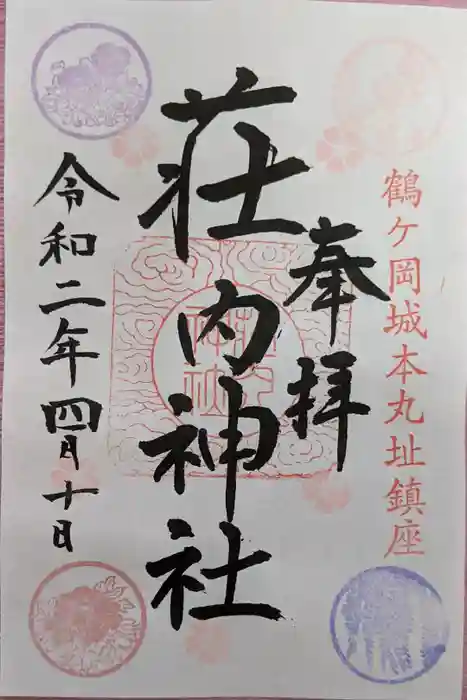 鶴ヶ岡城本丸址鎮座
奉拝
荘内神社
令和二年四月十日
荘内神社